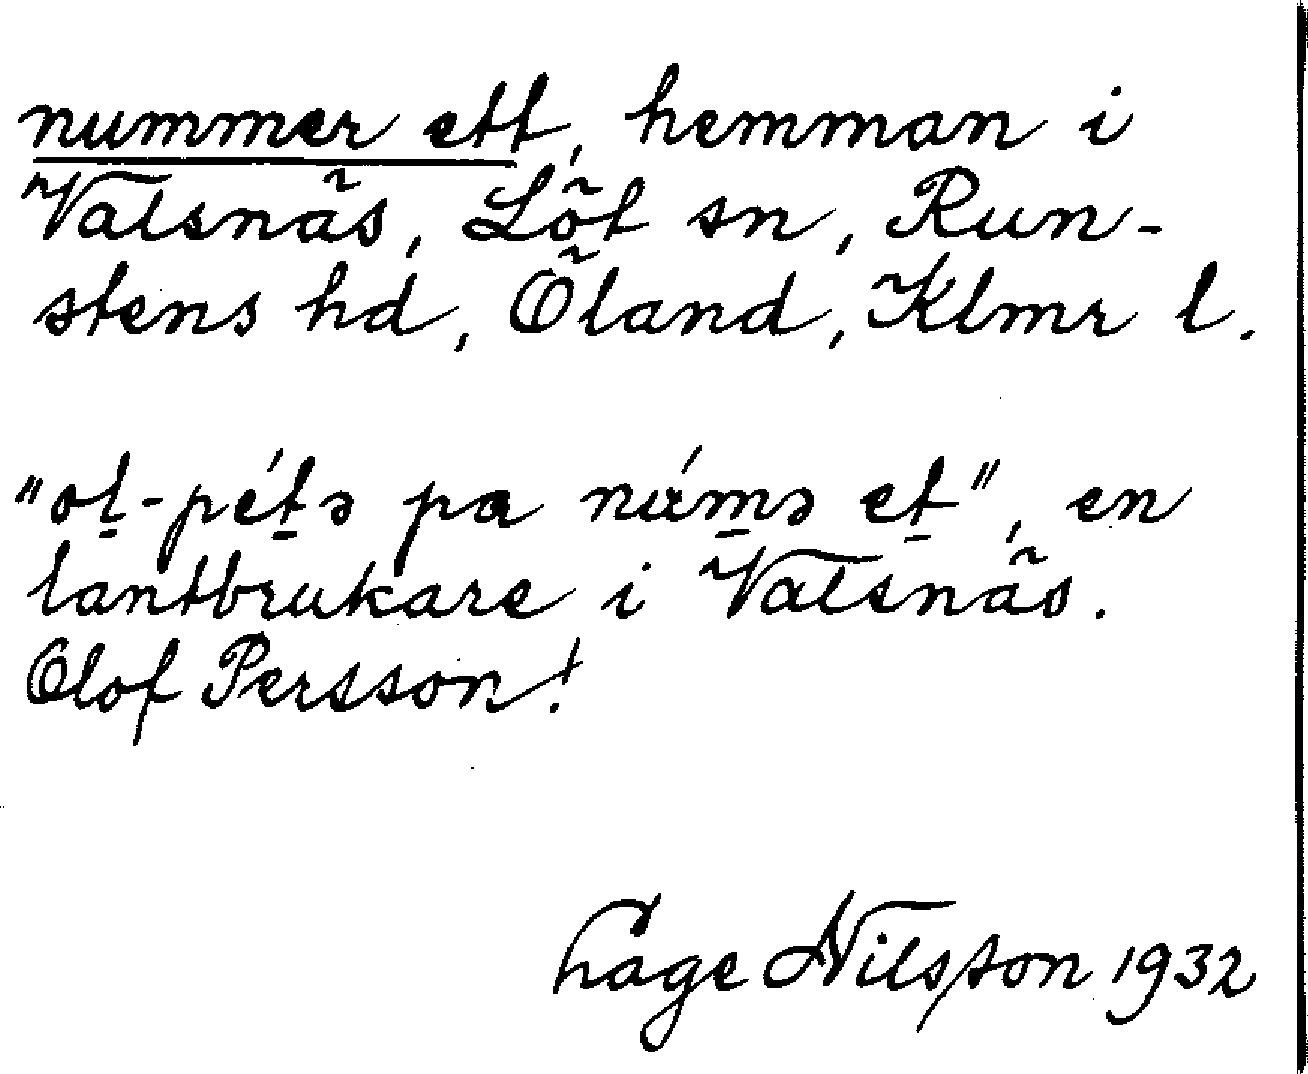 nummer ett, hemman i
Valsnäs, Löt sn, Run-
stens hd, Öland, Klmr l.
"ol̠-pét̠ə pa núm̠ə et̠", en
lantbrukare i Valsnäs.
Olof Persson!
Lage Nilsson 1932